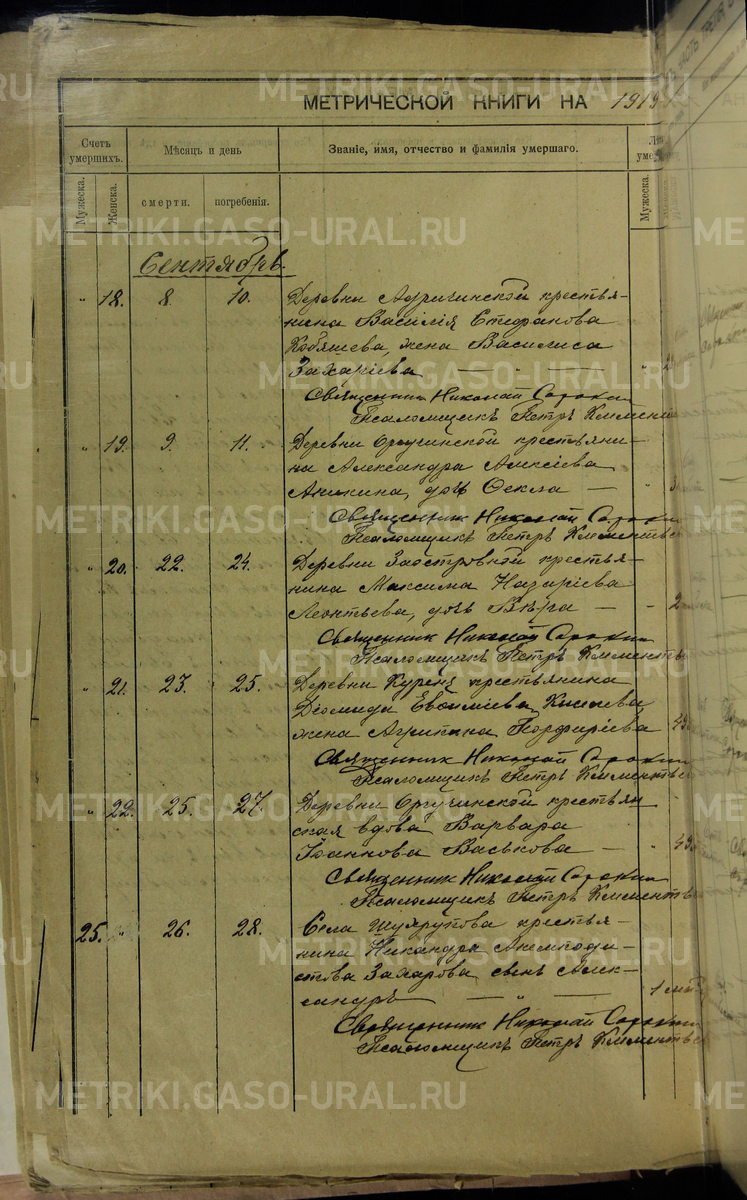 МЕТРИЧЕСКОЙ КНИГИ НА 1919
Счет умершихъ.
Мѣсяцъ и день
Званіе, имя, отчество и фамилія умершаго.
Мужеска.
Женска.
смерти.
погребенія.
Мужеска.
Сентябрь.
" 18. 8. 10. Деревни крестья-
нина Василія Стефанова
Кобяшева, жена Василиса
Захаріева — " —
Священник Николай Сорокин
Псаломщикъ Петръ Клементьев
" 19. 9. 11. Деревни Оргучинской крестьяни-
на Александра Алексіева
Аникина, дочь Фекла — "
Священник Николай Сорокин
Псаломщикъ Петръ Клементьев
" 20. 22. 24. Деревни Заостровной крестья-
нина Максима Назаріева
Леонтьева, дочь Вѣра — " 2
Священник Николай Сорокин
Псаломщикъ Петръ Клементьев
" 21. 23. 25. Деревни крестьянина
Діомида Евфиміева
жена Агрипина Порфиріева
Священник Николай Сорокин
Псаломщикъ Петръ Клементьев
" 22. 25. 27. Деревни Оргучинской крестьян
ская вдова Варвара
Іоаннова Васькова — "
Священник Николай Сорокин
Псаломщикъ Петръ Клементьев
25. " 26. 28. Села крестья-
нина Никандра Анемподи-
стова Захарова сынъ Алек-
сандръ — " — 1
Священник Николай Сорокин
Псаломщикъ Петръ Клементьев
METRIKI.GASO-URAL.RU